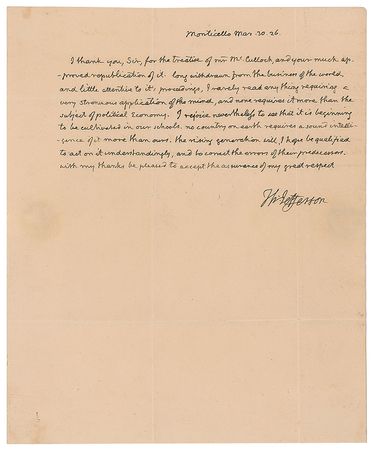 Monticello Mar. 20. 26.
I thank you, Sir, for the treatise of mr McCulloch, and your much ap-
proved republication of it. long withdrawn from the business of the world,
and little attentive to it's proceedings, I rarely read any thing requiring a
very strenuous application of the mind, and none requires it more than the
subject of political economy. I rejoice nevertheless to see that it is beginning
to be cultivated in our schools. no country on earth requires a sound intelli-
gence of it more than ours. the rising generation will I hope be qualified
to act on it understandingly, and to correct the errors of their predecessors.
with my thanks be pleased to accept the assurance of my great respect
Th: Jefferson